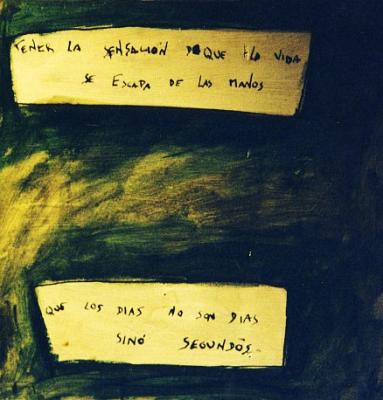 TENER LA SENSACIÓN DE QUE LA VIDA
SE ESCAPA DE LAS MANOS
QUE LOS DIAS NO SON DIAS
SINÓ SEGUNDOS.